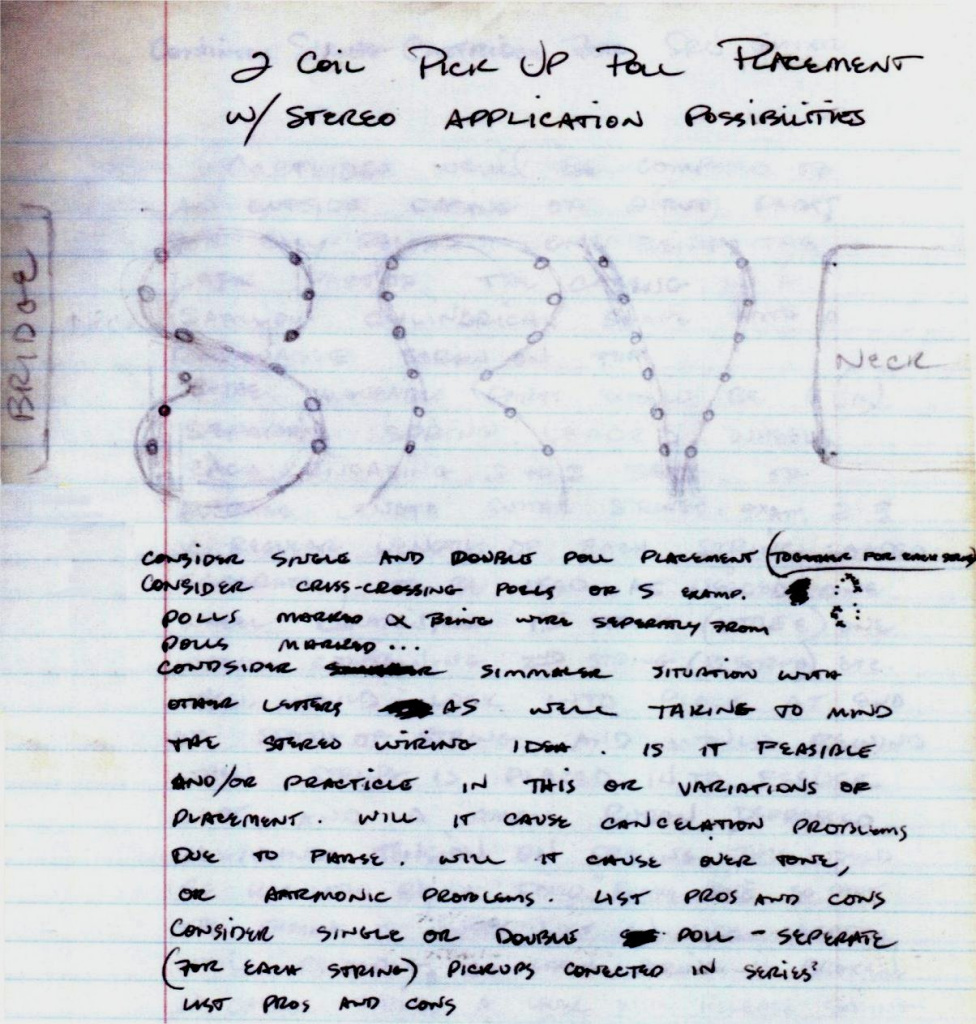 2 COIL PICK UP POLL PLACEMENT
W/ STEREO APPLICATION POSSIBILITIES
BRIDGE
NECK
CONSIDER SINGLE AND DOUBLE POLL PLACEMENT (TOGETHER FOR EACH
CONSIDER CRISS-CROSSING POLLS OR S EXAMP.
POLLS MARKED BEING WIRE SEPERATLY FROM
POLLS MARKED...
CONDSIDER SIMMALER SITUATION WITH
OTHER LETTERS AS WELL TAKING TO MIND
THE STEREO WIRING IDEA. IS IT FEASIBLE
AND/OR PRACTICLE IN THIS OR VARIATIONS OF
PLACEMENT. WILL IT CAUSE CANCELATION PROBLEMS
DUE TO PHASE. WILL IT CAUSE OVER TONE,
OR AARMONIC PROBLEMS. LIST PROS AND CONS
CONSIDER SINGLE OR DOUBLE POLL - SEPERATE
(FOR EACH STRING) PICKUPS CONECTED IN SERIES?
LIST PROS AND CONS